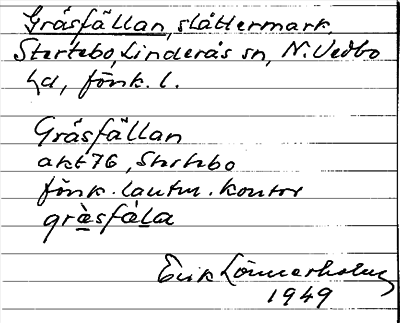 Gräsfällan, slåttermark,
Stertebo, Linderås sn, N. Vedbo
hd, Jönk. l.
Gräsfällan
akt 76, Stertebo
Jönk. lantm. kontor
gràsfàla
Erik Lönnerholm
1949